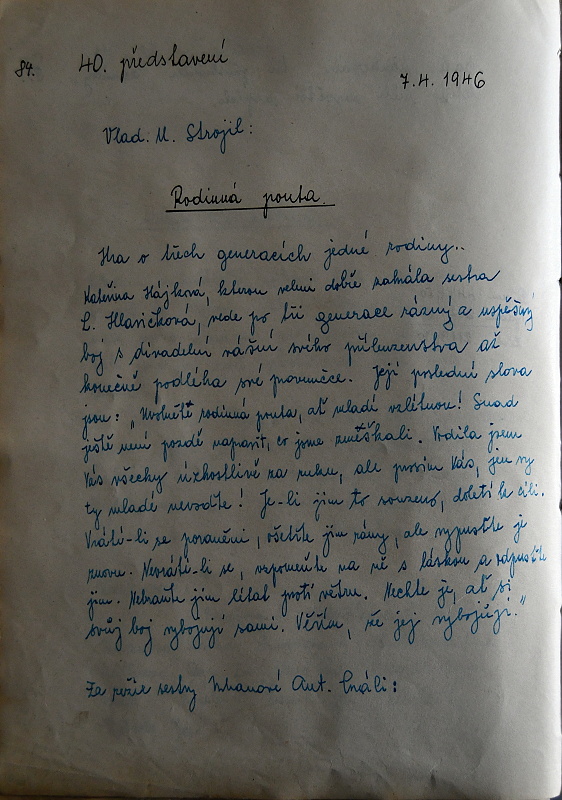 84. 40. představení
7.4. 1946
Vlad. M. Strojil:
Rodinná pouta.
Hra o třech generacích jedné rodiny..
Kateřina Hájková, kterou velmi dobře zahrála sestra
L. Hlavičková, vede po tři generace rázný a úspěšný
boj s divadelní vášní svého příbuzenstva až
konečně podléhá své pravnučce. Její poslední slova
jsou: „Uvolněte rodinná pouta, ať mladí vzlétnou! Snad
ještě není pozdě napravit, co jsme zmeškali. Vodila jsem
Vás všecky úzkostlivě za ruku, ale prosím Vás, jen vy
ty mladé nevoďte! Je-li jim to souzeno, doletí k cíli.
Vrátí-li se poraněni, ošetřte jim rány, ale vypusťte je
znovu. Nevrátí-li se, vzpomeňte na ně s láskou a odpusťte
jim. Nebraňte jim létat proti větru. Nechte je, ať si
svůj boj vybojují sami. Věřím, že jej vybojují."
Za režie sestry Urbanové Ant. hráli: